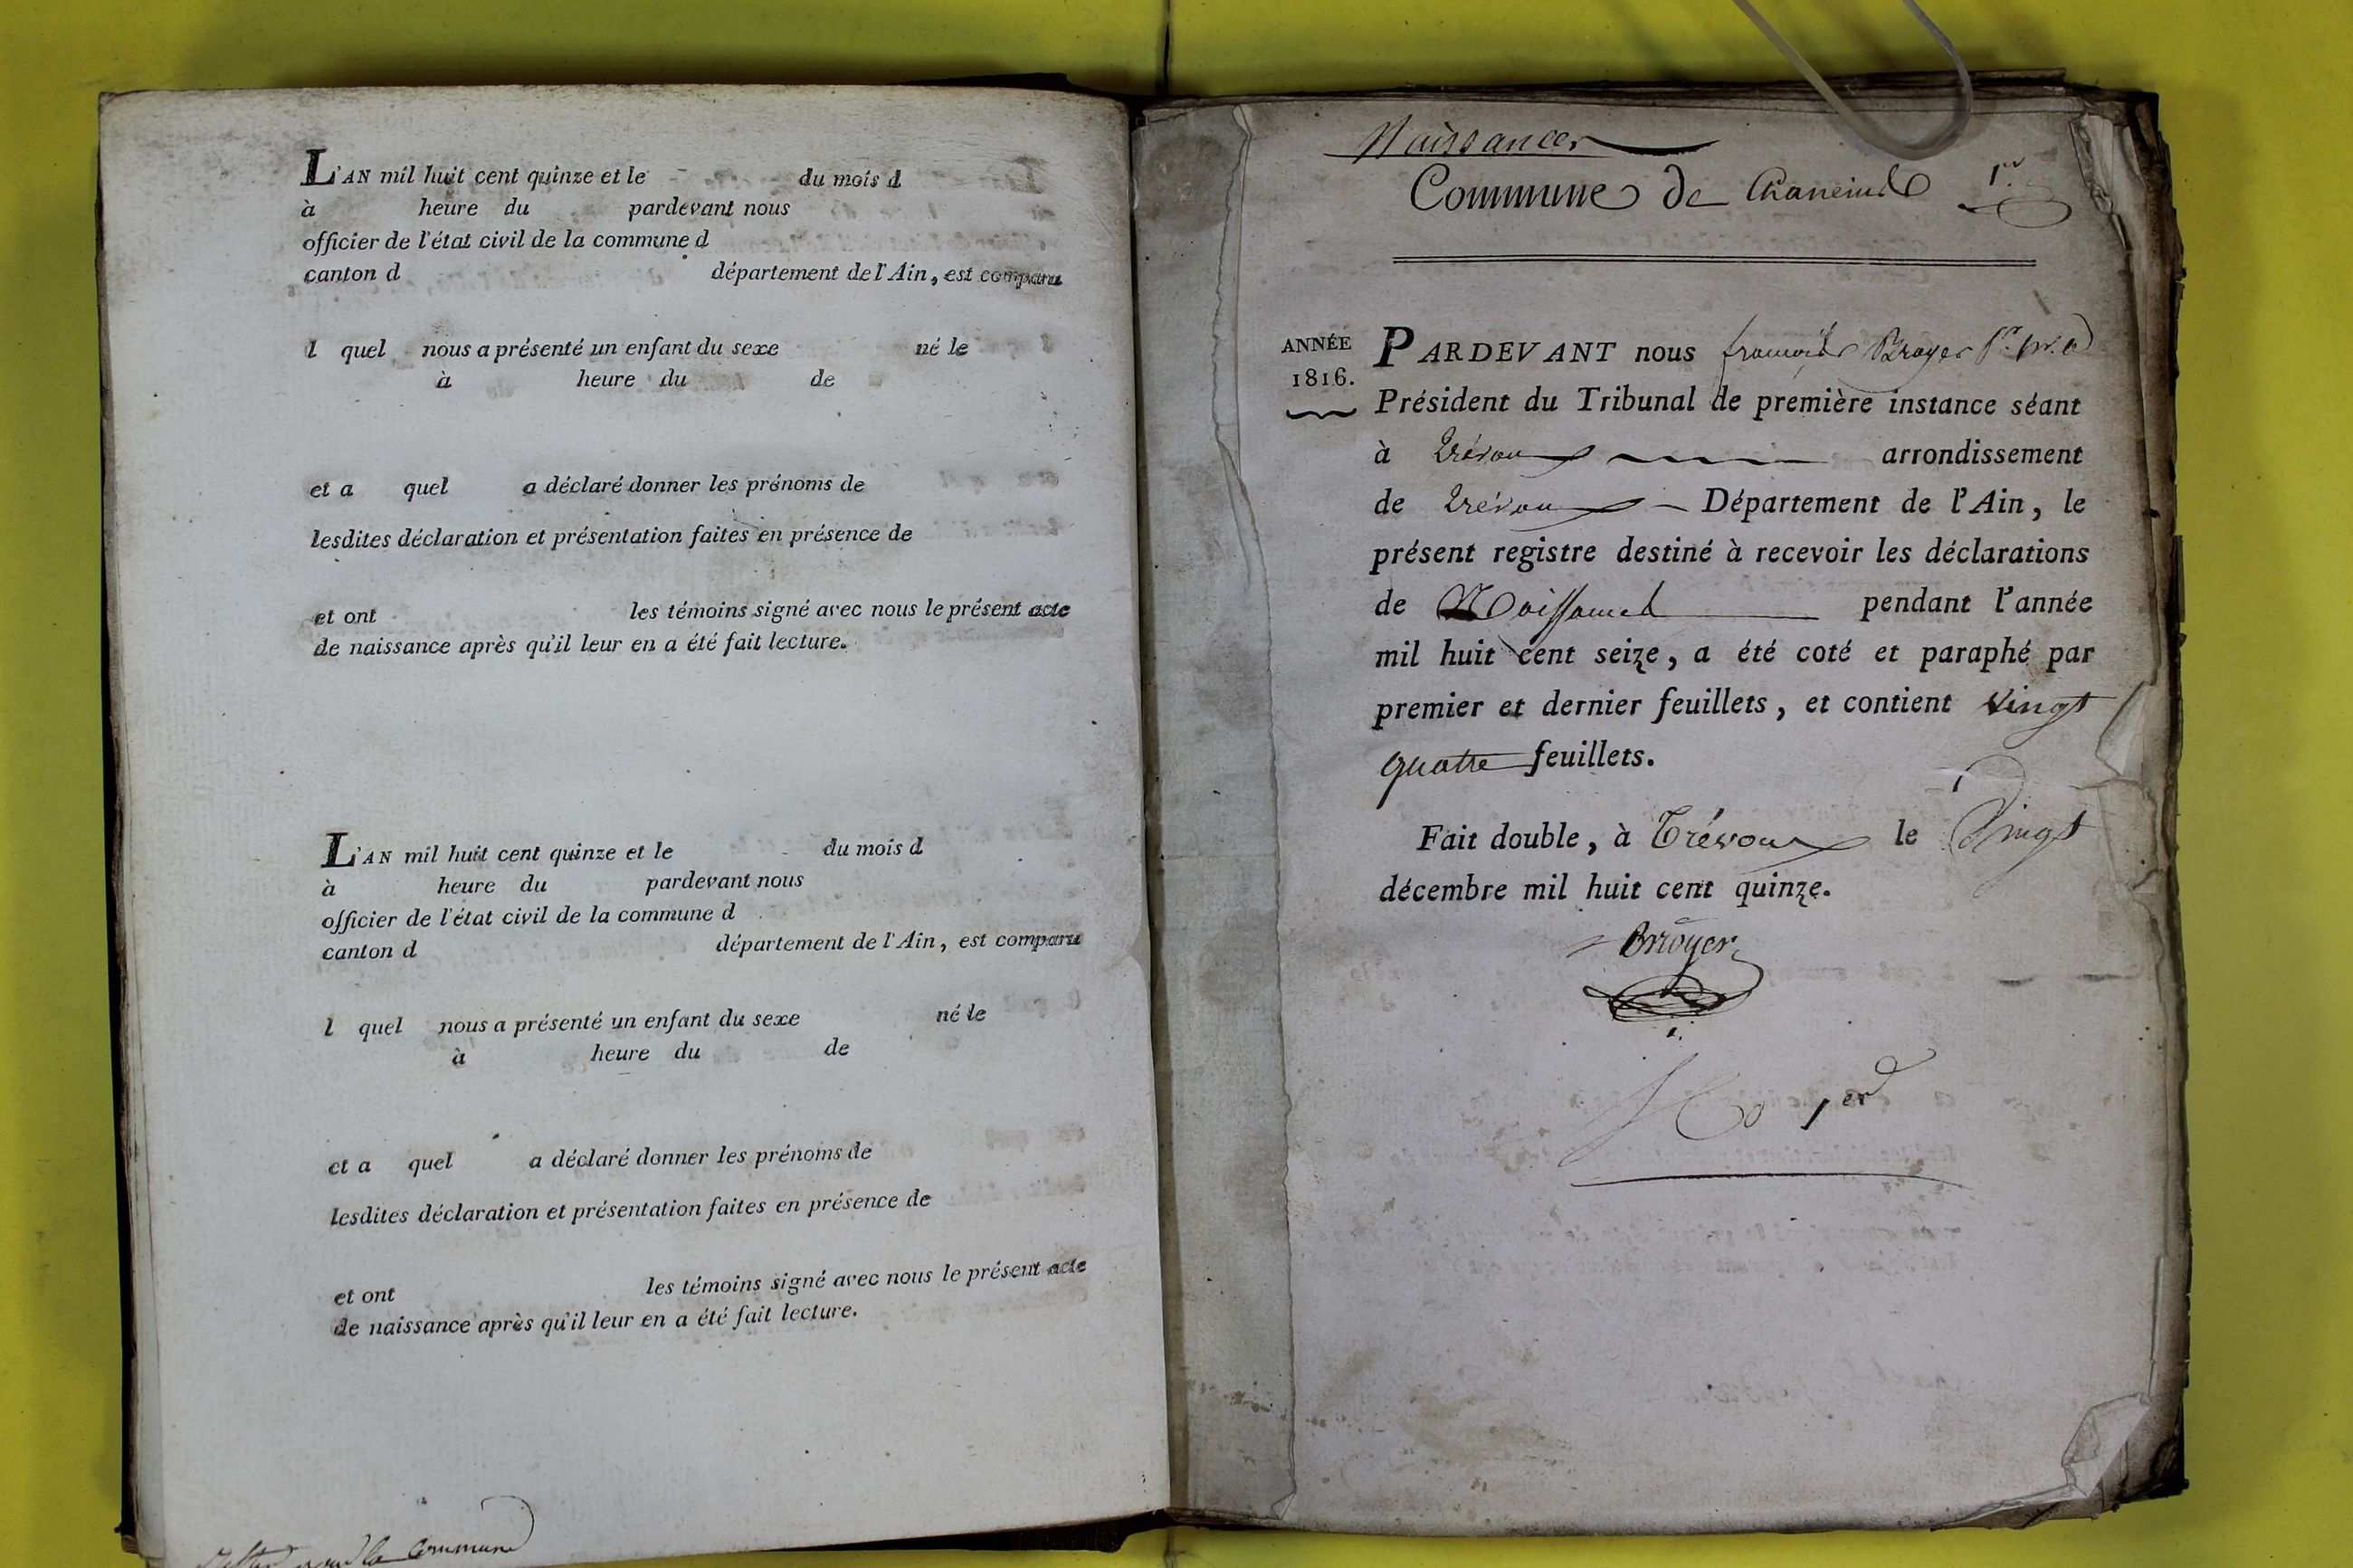 L'AN mil huit cent quinze et le du mois d
à heure du pardevant nous
officier de l'état civil de la commune d
canton d département de l'Ain, est comparu
l quel nous a présenté un enfant du sexe né le
à heure du de
et a quel a déclaré donner les prénoms de
lesdites déclaration et présentation faites en présence de
et ont les témoins signé avec nous le présent acte
de naissance après qu'il leur en a été fait lecture.
L'AN mil huit cent quinze et le du mois d
à heure du pardevant nous
officier de l'état civil de la commune d
canton d département de l'Ain, est comparu
l quel nous a présenté un enfant du sexe né le
à heure du de
et a quel a déclaré donner les prénoms de
lesdites déclaration et présentation faites en présence de
et ont les témoins signé avec nous le présent acte
de naissance après qu'il leur en a été fait lecture.
la Commune
Naissances
Commune de Chaneins 1er
ANNÉE
1816.
PARDEVANT nous françois Broyer
Président du Tribunal de première instance séant
à Trévoux arrondissement
de Trévoux Département de l'Ain, le
présent registre destiné à recevoir les déclarations
de Naissances pendant l'année
mil huit cent seize, a été coté et paraphé par
premier et dernier feuillets, et contient vingt
quatre feuillets.
Fait double, à Trévoux le Vingt
décembre mil huit cent quinze.
Broyer
fo 1er